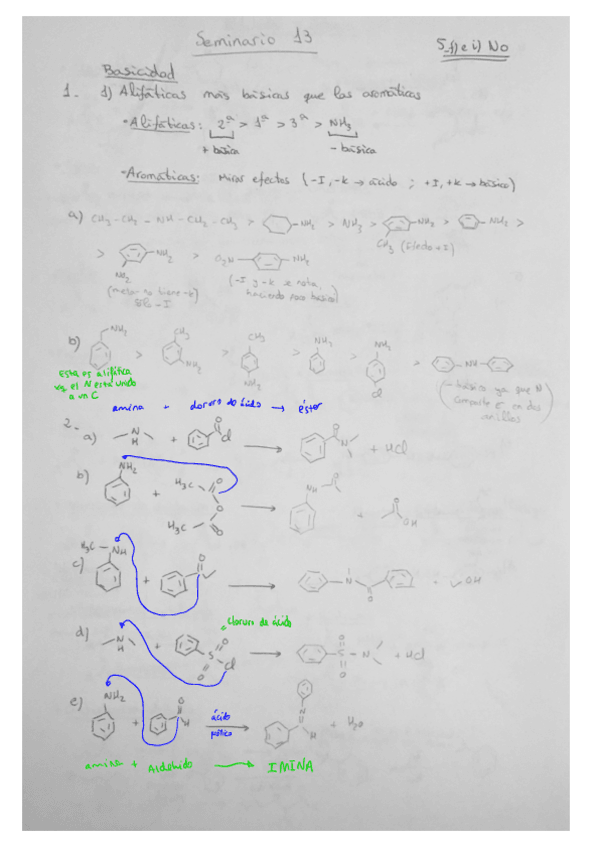 Seminario 13
5 f) e i) No
Basicidad
1. 1) Alifáticas más básicas que las aromáticas
• Alifáticas: 2ª > 1ª > 3ª > NH3
+ básica - básica
• Aromáticas: Mirar efectos (-I, -K → ácido ; +I, +K → básico)
a) CH3 - CH2 - NH - CH2 - CH3 > -NH2 > NH3 > -NH2 > -NH2 >
CH3 (Efecto +I)
> > O2N -NH2
NH2
NO2
(meta no tiene -K)
Sólo -I
(-I y -K se nota, haciendo poco básico)
b) NH2 > CH3 NH2 > CH3 NH2 > NH2 > NH2 Cl > NH
Esta es alifática
xq el N está unido
a un C
(-básica ya que N
comparte e- en dos
anillos)
amina + cloruro de ácido → éster
2.
a) N H + O Cl → O N + HCl
b) NH2 + H3C O O H3C O → NH O + O OH
c) H3C - NH + O → N O + OH
d) N H + O S O Cl → O S O - N + HCl
cloruro de ácido
e) NH2 + O H → N H + H2O
ácido
prótico
amina + Aldehído → IMINA